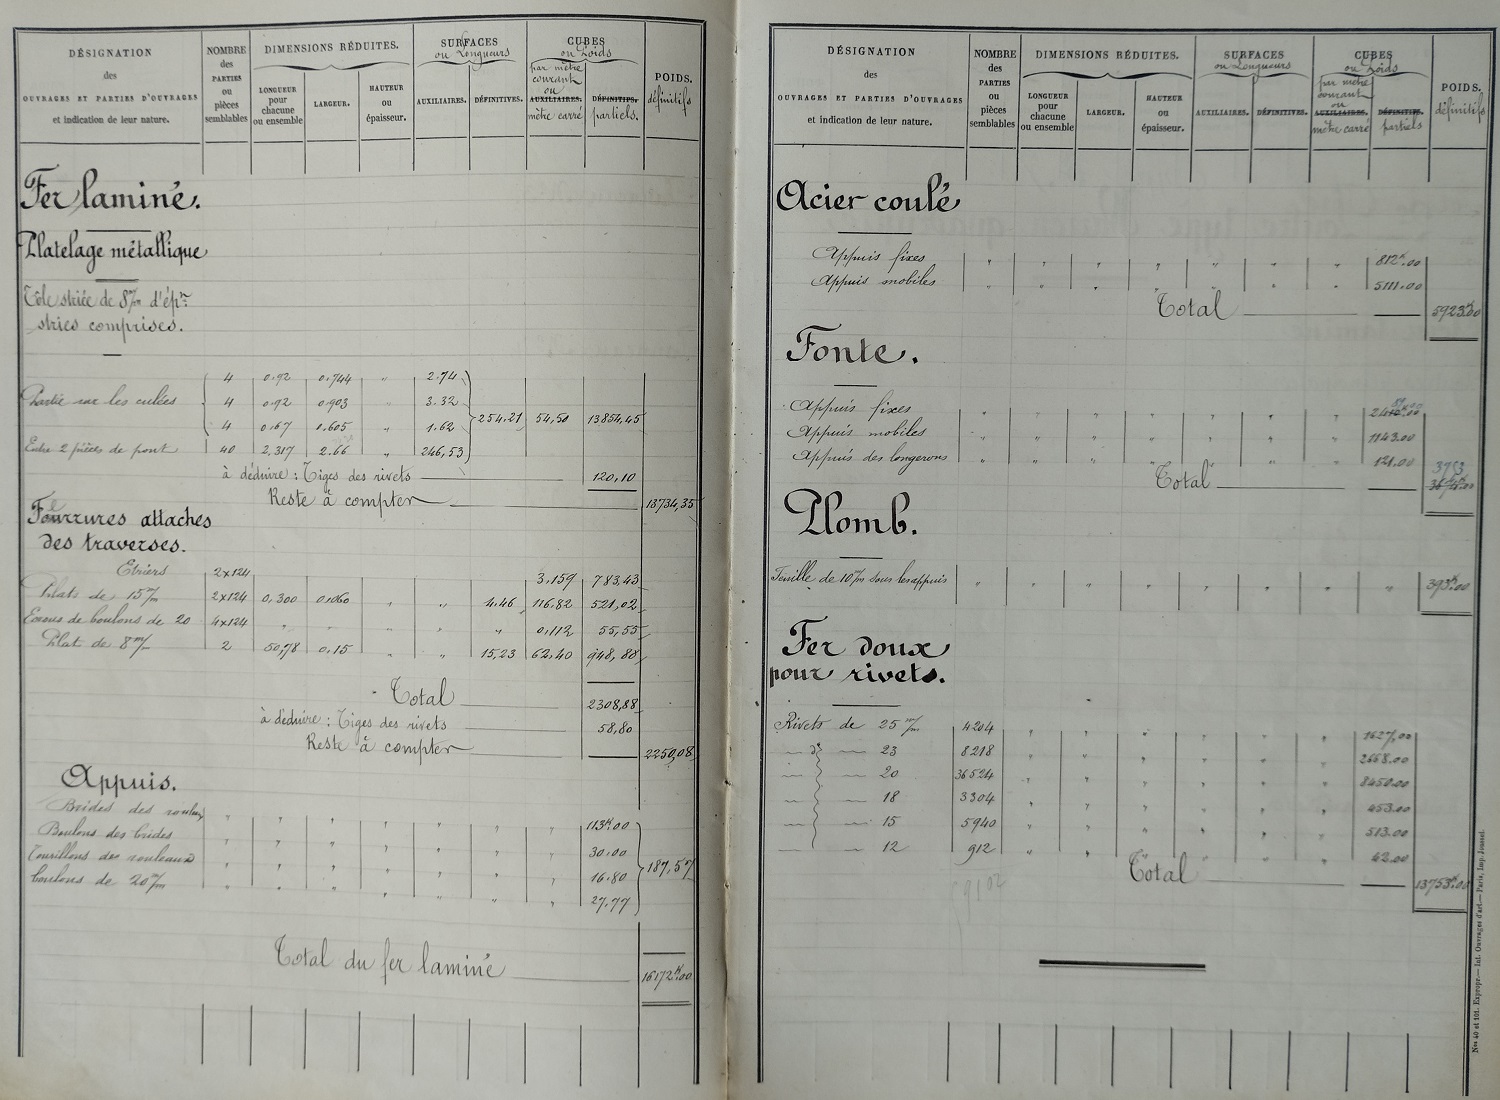 DÉSIGNATION
des
OUVRAGES ET PARTIES D'OUVRAGES
et indication de leur nature.
NOMBRE
des
PARTIES
ou
pièces
semblables
DIMENSIONS RÉDUITES.
LONGUEUR
pour
chacune
ou ensemble
LARGEUR.
HAUTEUR
ou
épaisseur.
SURFACES
ou Longueurs
AUXILIAIRES.
DÉFINITIVES.
CUBES
ou Poids
par mètre
courant
ou
AUXILIAIRES.
mètre carré
DÉFINITIFS.
partiels.
POIDS.
définitifs
Fer laminé.
Platelage métallique
Tôle striée de 8m/m d'épr
stries comprises.
4 0.92 0.744 " 2.74
Partie sur les culées 4 0.92 0.903 " 3.32
4 0.67 0.605 " 1.62
254.21 54,50 13854,45
Entre 2 pièces de pont 40 2.317 2.66 " 246,53
à déduire : Tiges des rivets 120,10
Reste à compter 13734,35
Fourrures attaches
des traverses.
Etriers 2x124 3,159 783,43
Plats de 15m/m 2x124 0,300 0,060 " " 4.46 116.82 521,02
Ecrous de boulons de 20 4x124 " " " " " 0,112 55,55
Plat de 8m/m 2 50,78 0,15 " " 15,23 62,40 948,88
Total 2308,88
à déduire : Tiges des rivets 58,80
Reste à compter 2250,08
Appuis.
Brides des rouleaux " " " " " " " 113k.00
Boulons des brides " " " " " " " 30.00
Tourillons des rouleaux " " " " " " " 16.80
boulons de 20m/m " " " " " " " 27,77
187,57
Total du fer laminé 16172k.00
DÉSIGNATION
des
OUVRAGES ET PARTIES D'OUVRAGES
et indication de leur nature.
NOMBRE
des
PARTIES
ou
pièces
semblables
DIMENSIONS RÉDUITES.
LONGUEUR
pour
chacune
ou ensemble
LARGEUR.
HAUTEUR
ou
épaisseur.
SURFACES
ou Longueurs
AUXILIAIRES.
DÉFINITIVES.
CUBES
ou Poids
par mètre
courant
ou
AUXILIAIRES.
mètre carré
DÉFINITIFS.
partiels
POIDS.
définitifs
Acier coulé
Appuis fixes " " " " " " " 812k.00
Appuis mobiles " " " " " " " 5111.00
Total 5923k.00
Fonte.
Appuis fixes " " " " " " "
Appuis mobiles " " " " " " " 1143.00
Appuis des longerons " " " " " " " 121.00
Total
Plomb.
Feuille de 10m/m sous les appuis " " " " " " " " 393k.00
Fer doux
pour rivets.
Rivets de 25 m/m 4204 " " " " " " 1627,00
— d° — 23 8218 " " " " " " 2668.00
— — 20 36524 " " " " " " 8450.00
— — 18 3304 " " " " " " 453.00
— — 15 5940 " " " " " " 513.00
— — 12 912 " " " " " " 42.00
Total 13753k.00
59102
Nos 40 et 101. Expropr.— Int. Ouvrages d'art.— Paris, Imp. Jousset.